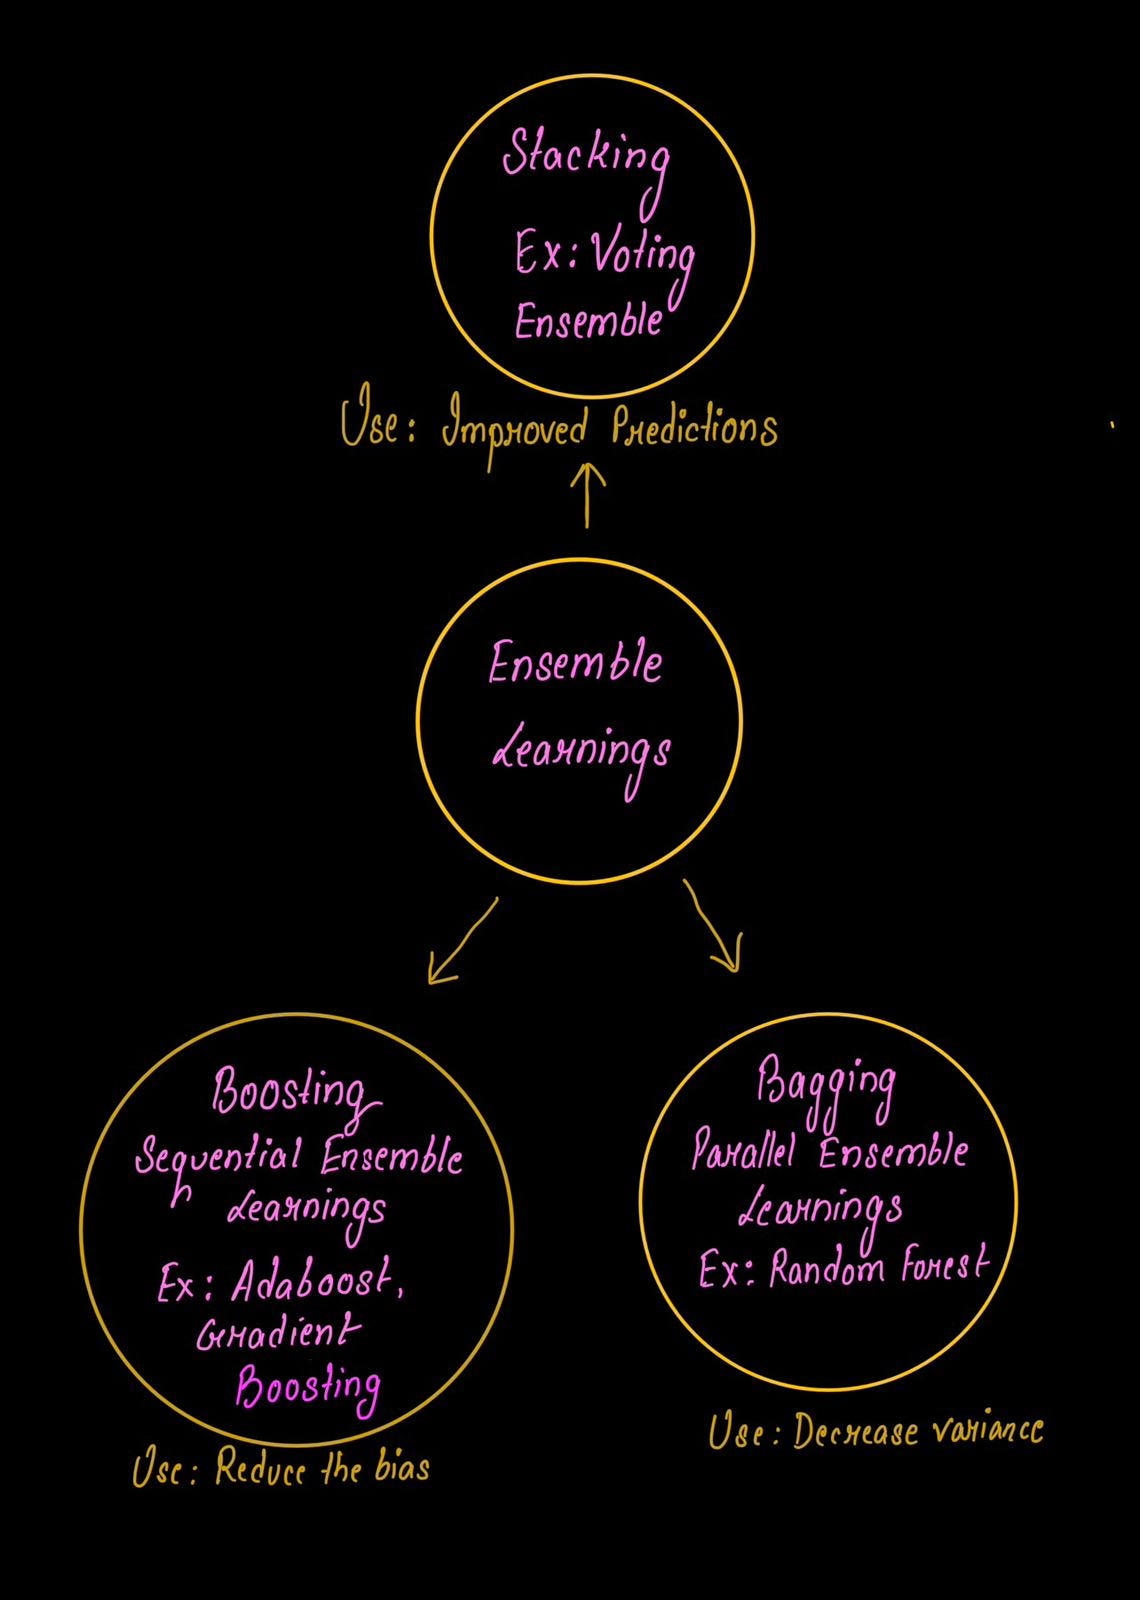 Stacking
Ex: Voting
Ensemble
Use: Improved Predictions
Ensemble
Learnings
Boosting
Sequential Ensemble
Learnings
Ex: Adaboost,
Gradient
Boosting
Use: Reduce the bias
Bagging
Parallel Ensemble
Learnings
Ex: Random Forest
Use: Decrease variance